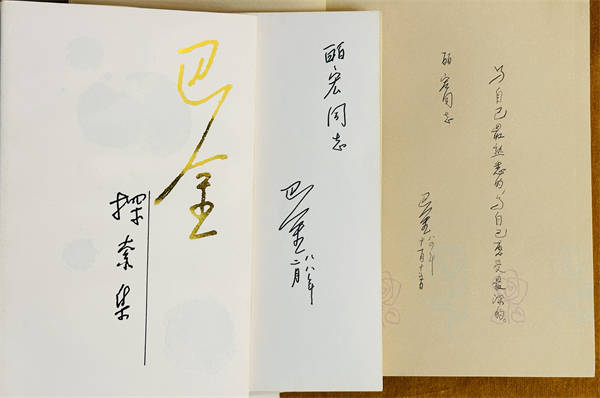 巴金
探索集
丽宏同志
巴金
八八年
二月
写自己最熟悉的,写自己感受最深的。
丽宏同志
巴金
八四年
十一月